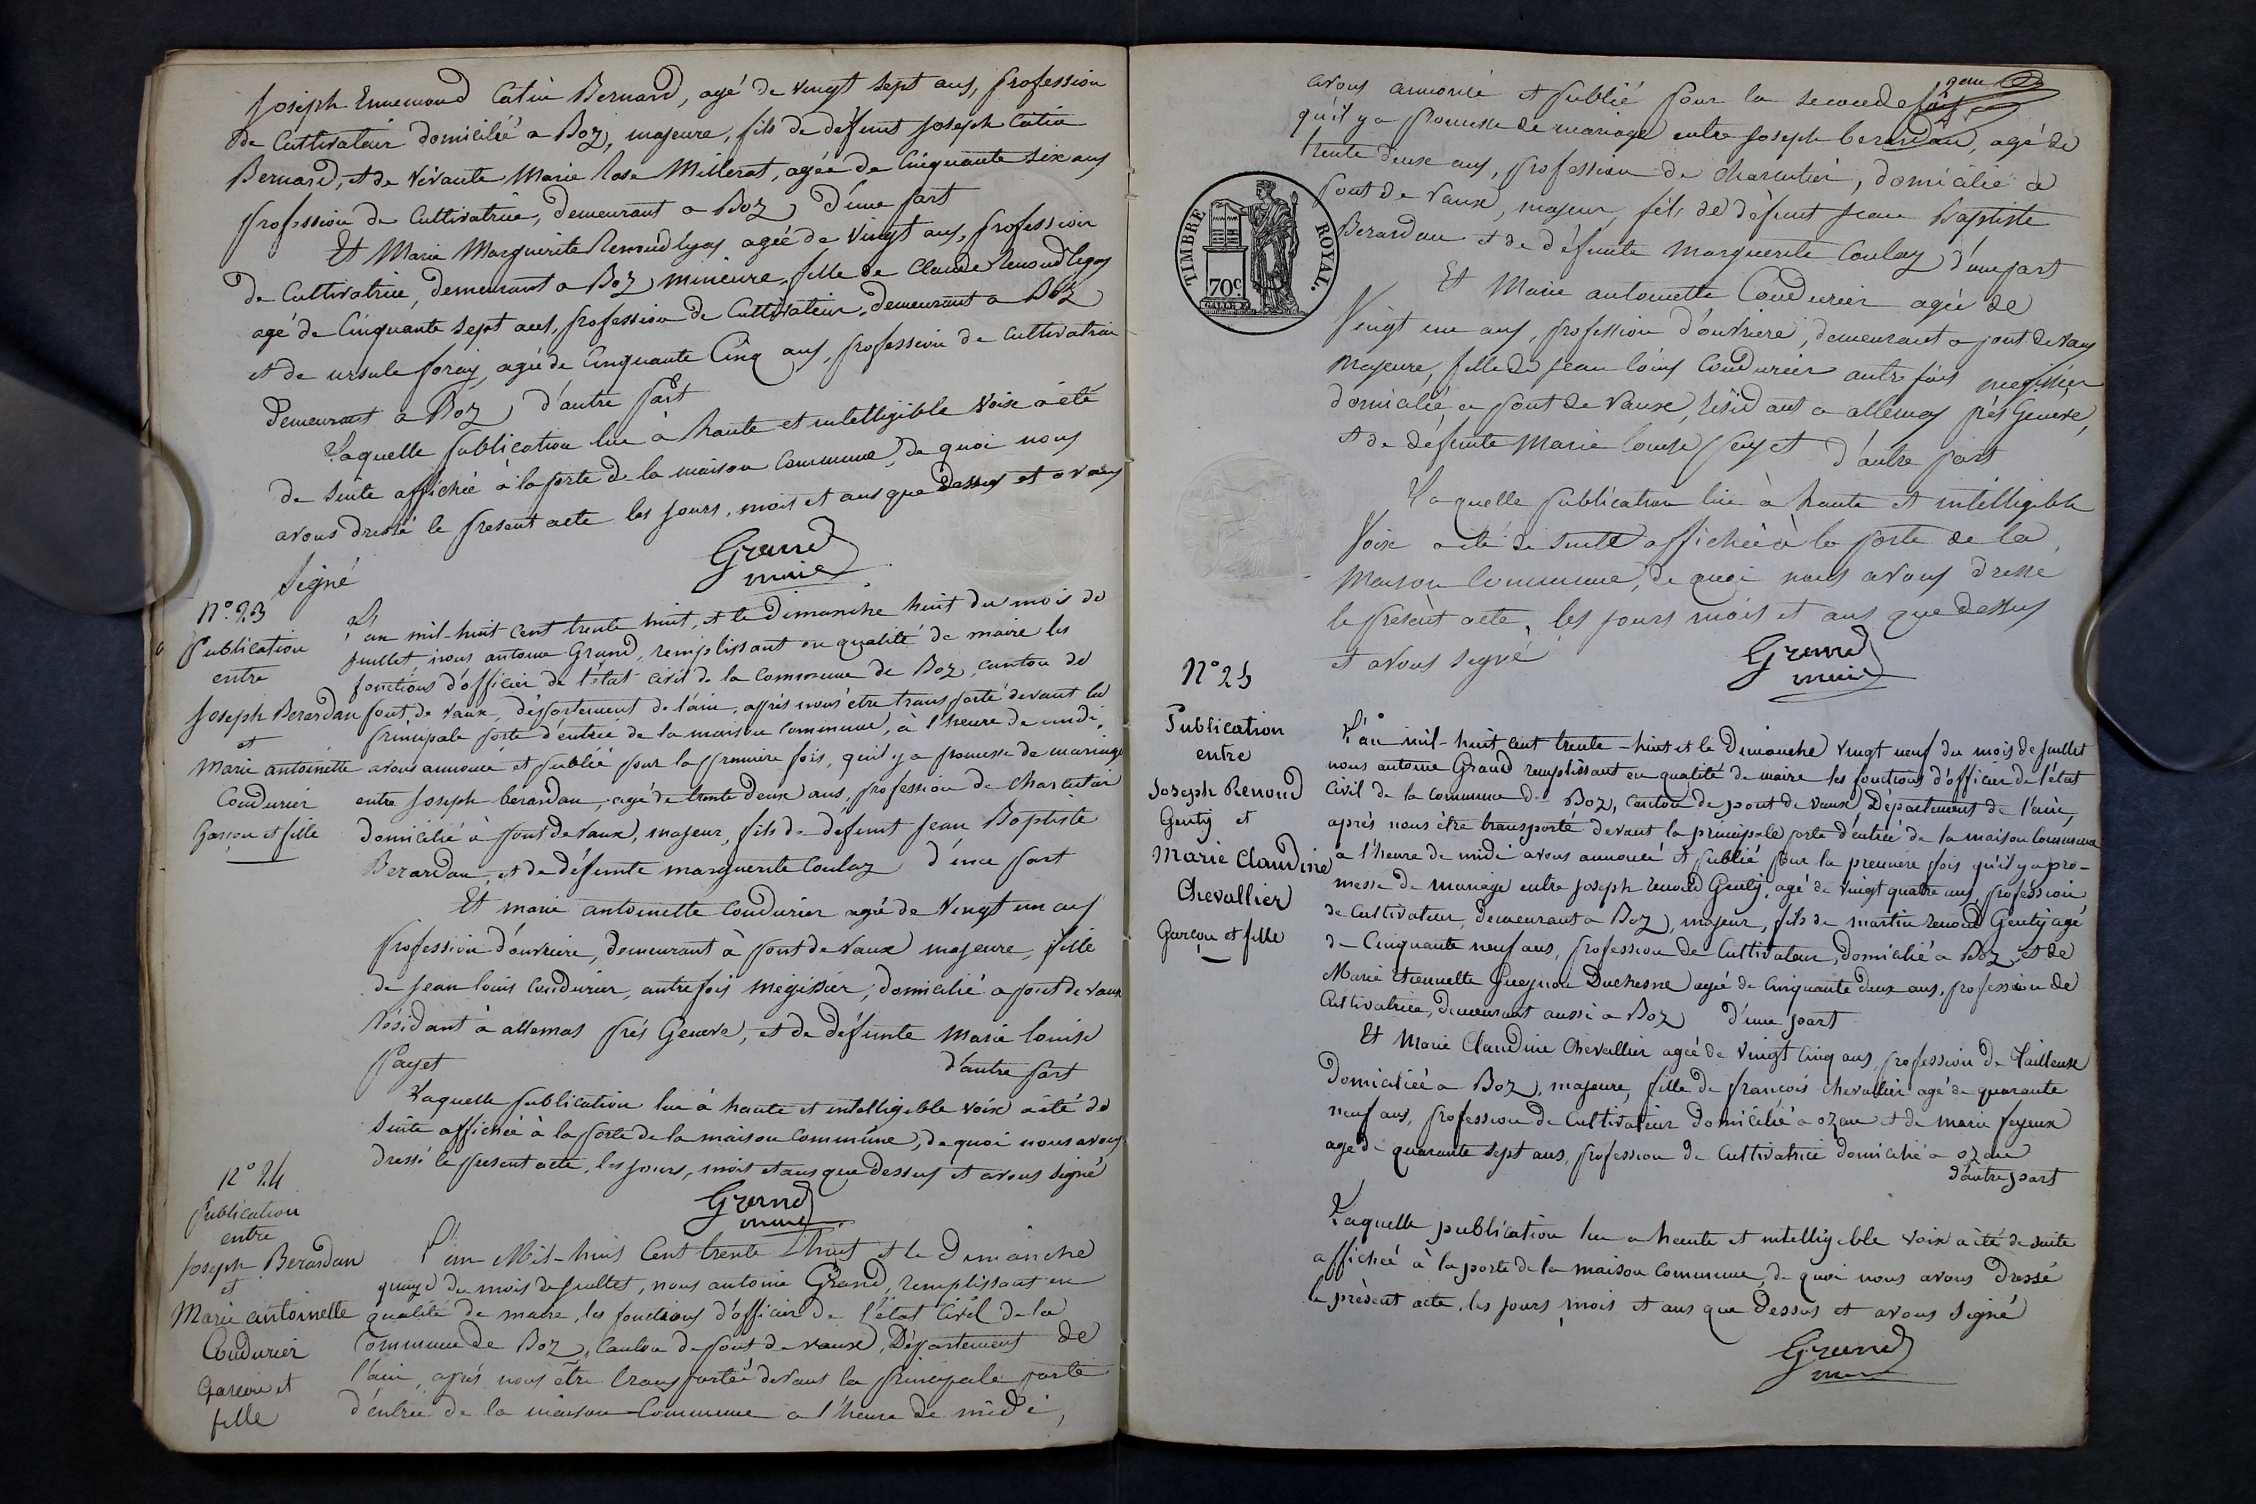 Joseph Ennemond Catin Bernard, agé de vingt sept ans, profession
de Cultivateur domicilié a Boz, majeure, fils de défunt Joseph Catin
Bernard, et de vivante Marie Rose Millerat, agée de Cinquante six ans
profession de Cultivatrice, demeurant a Boz, d'une part
Et Marie Marguerite Renoud lyas agée de Vingt ans, profession
de Cultivatrice, demeurant a Boz mineure, fille de Claude Renoud lyas
agé de Cinquante sept ans, profession de Cultivateur, demeurant a Boz
et de ursule foray, agée de Cinquante Cinq ans, profession de cultivatrice
demeurant a Boz, d'autre part
Laquelle publication lue à haute et intelligible voix a été
de suite affichée à la porte de la maison Commune, de quoi nous
avons dressé le present acte les jours, mois et ans que dessus et avons
Signé
Grand
maire
N.° 23
Publication
entre
Joseph Berardan
et
Marie antoinette
Coudurier
Garçon et fille
L'an mil-huit cent trente huit, et le Dimanche huit du mois de
juillet, nous antoine Grand, remplissant en qualité de maire les
fonctions d'officier de l'état civil de la Commune de Boz, canton de
pont de vaux, département de l'ain, après nous être transporté devant la
principale porte d'entrée de la maison Commune, à l'heure de midi,
avons annoncé et publié pour la premiere fois, qu'il y a promesse de mariage
entre Joseph berardan, agé de trente deux ans, profession de charcutier
domicilié à pont de Vaux, majeur, fils de defunt Jean Baptiste
Berardan et de défunte marguerite Coulaz d'une part
Et marie antoinette Coudurier agée de Vingt un ans
profession d'ouvriere, demeurant à pont de Vaux majeure, fille
de Jean louis Coudurier, autrefois mégissier, domicilié a pont de vaux
Résidant à allemas prés Geneve, et de défunte Marie louise
Payet d'autre part
Laquelle publication lue à haute et intelligible voix a été de
Suite affichée à la porte de la maison Commune, de quoi nous avons
dressé le present acte, les jours, mois et ans que dessus et avons signé
Grand
maire
N° 24
Publication
entre
Joseph Berardan
et
Marie antoinette
Coudurier
Garçon et
fille
L'an Mil-huit Cent trente huit et le Dimanche
quinze du mois de juillet, nous antoine Grand, remplissant en
qualité de maire, les fonctions d'officier de l'état Civil de la
Commune de Boz, Canton de pont de vaux, Département de
l'ain, après nous être transporté devant la principale porte
d'entrée de la maison Commune a l'heure de midi,
avons annoncé et publié pour la seconde fois
qu'il y a promesse de mariage entre Joseph berardan, agé de
trente deux ans, profession de charcutier, domicilié à
pont de Vaux, majeur, fils de défunt Jean Baptiste
Berardan et de défunte Marguerite Coulaz d'une part
Et Marie antoinette Coudurier agée de
Vingt un ans, profession d'ouvriere, demeurant a pont de vaux
majeure, fille de Jean louis Coudurier autrefois megissier
domicilié a pont de Vaux, résidant a allemas prés Geneve,
et de défunte Marie louise Payet d'autre part
Laquelle publication lue à haute et intelligible
Voix a été de suite affichée à la porte de la
Maison Commune, de quoi nous avons dressé
le présent acte, les jours mois et ans que dessus
et avons signé
Grand
maire
TIMBRE ROYAL.
70c
N° 25
Publication
entre
Joseph Renoud
Genty et
Marie Claudine
Chevallier
Garçon et fille
L'an mil-huit cent trente-huit et le Dimanche vingt neuf du mois de juillet
nous antoine Grand remplissant en qualité de maire les fonctions d'officier de l'état
Civil de la commune de Boz, Canton de pont de vaux Département de l'ain,
après nous être transporté devant la principale porte d'entrée de la maison Commune
a l'heure de midi avons annoncé et publié pour la premiere fois qu'il y a pro-
messe de mariage entre Joseph renoud Genty, agé de vingt quatre ans, profession
de Cultivateur, demeurant a Boz, majeur, fils de martin renoud Genty agé
de Cinquante neuf ans, profession de Cultivateur, Domicilié a Boz, et de
Marie Duchesne agée de Cinquante deux ans, profession de
Cultivatrice, Demeurant aussi a Boz d'une part
Et Marie Claudine Chevallier agée de Vingt Cinq ans profession de Tailleuse
Domiciliée a Boz, majeure, fille de françois Chevallier agé de quarante
neuf ans, profession de Cultivateur Domicilié a ozan et de marie feyeux
agé de quarante sept ans, profession de Cultivatrice domicilié a ozan
d'autre part
Laquelle publication lue a haute et intelligible voix a été de suite
affichée à la porte de la maison Commune, de quoi nous avons Dressé
le prèsent acte, les jours mois et ans que Dessus et avons Signé
Grand
maire